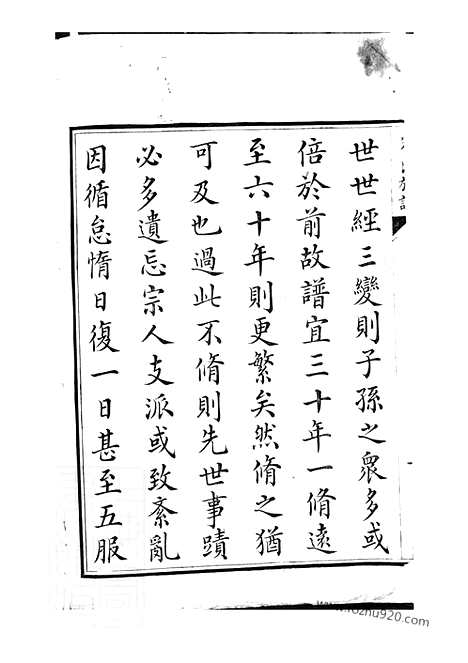 世世經三變則子孫之眾多或
倍於前故譜宜三十年一脩遠
至六十年則更繁矣然脩之猶
可及也過此不脩則先世事蹟
必多遺忘宗人支派或致紊亂
因循怠惰日復一日甚至五服
www.fozhu920.com